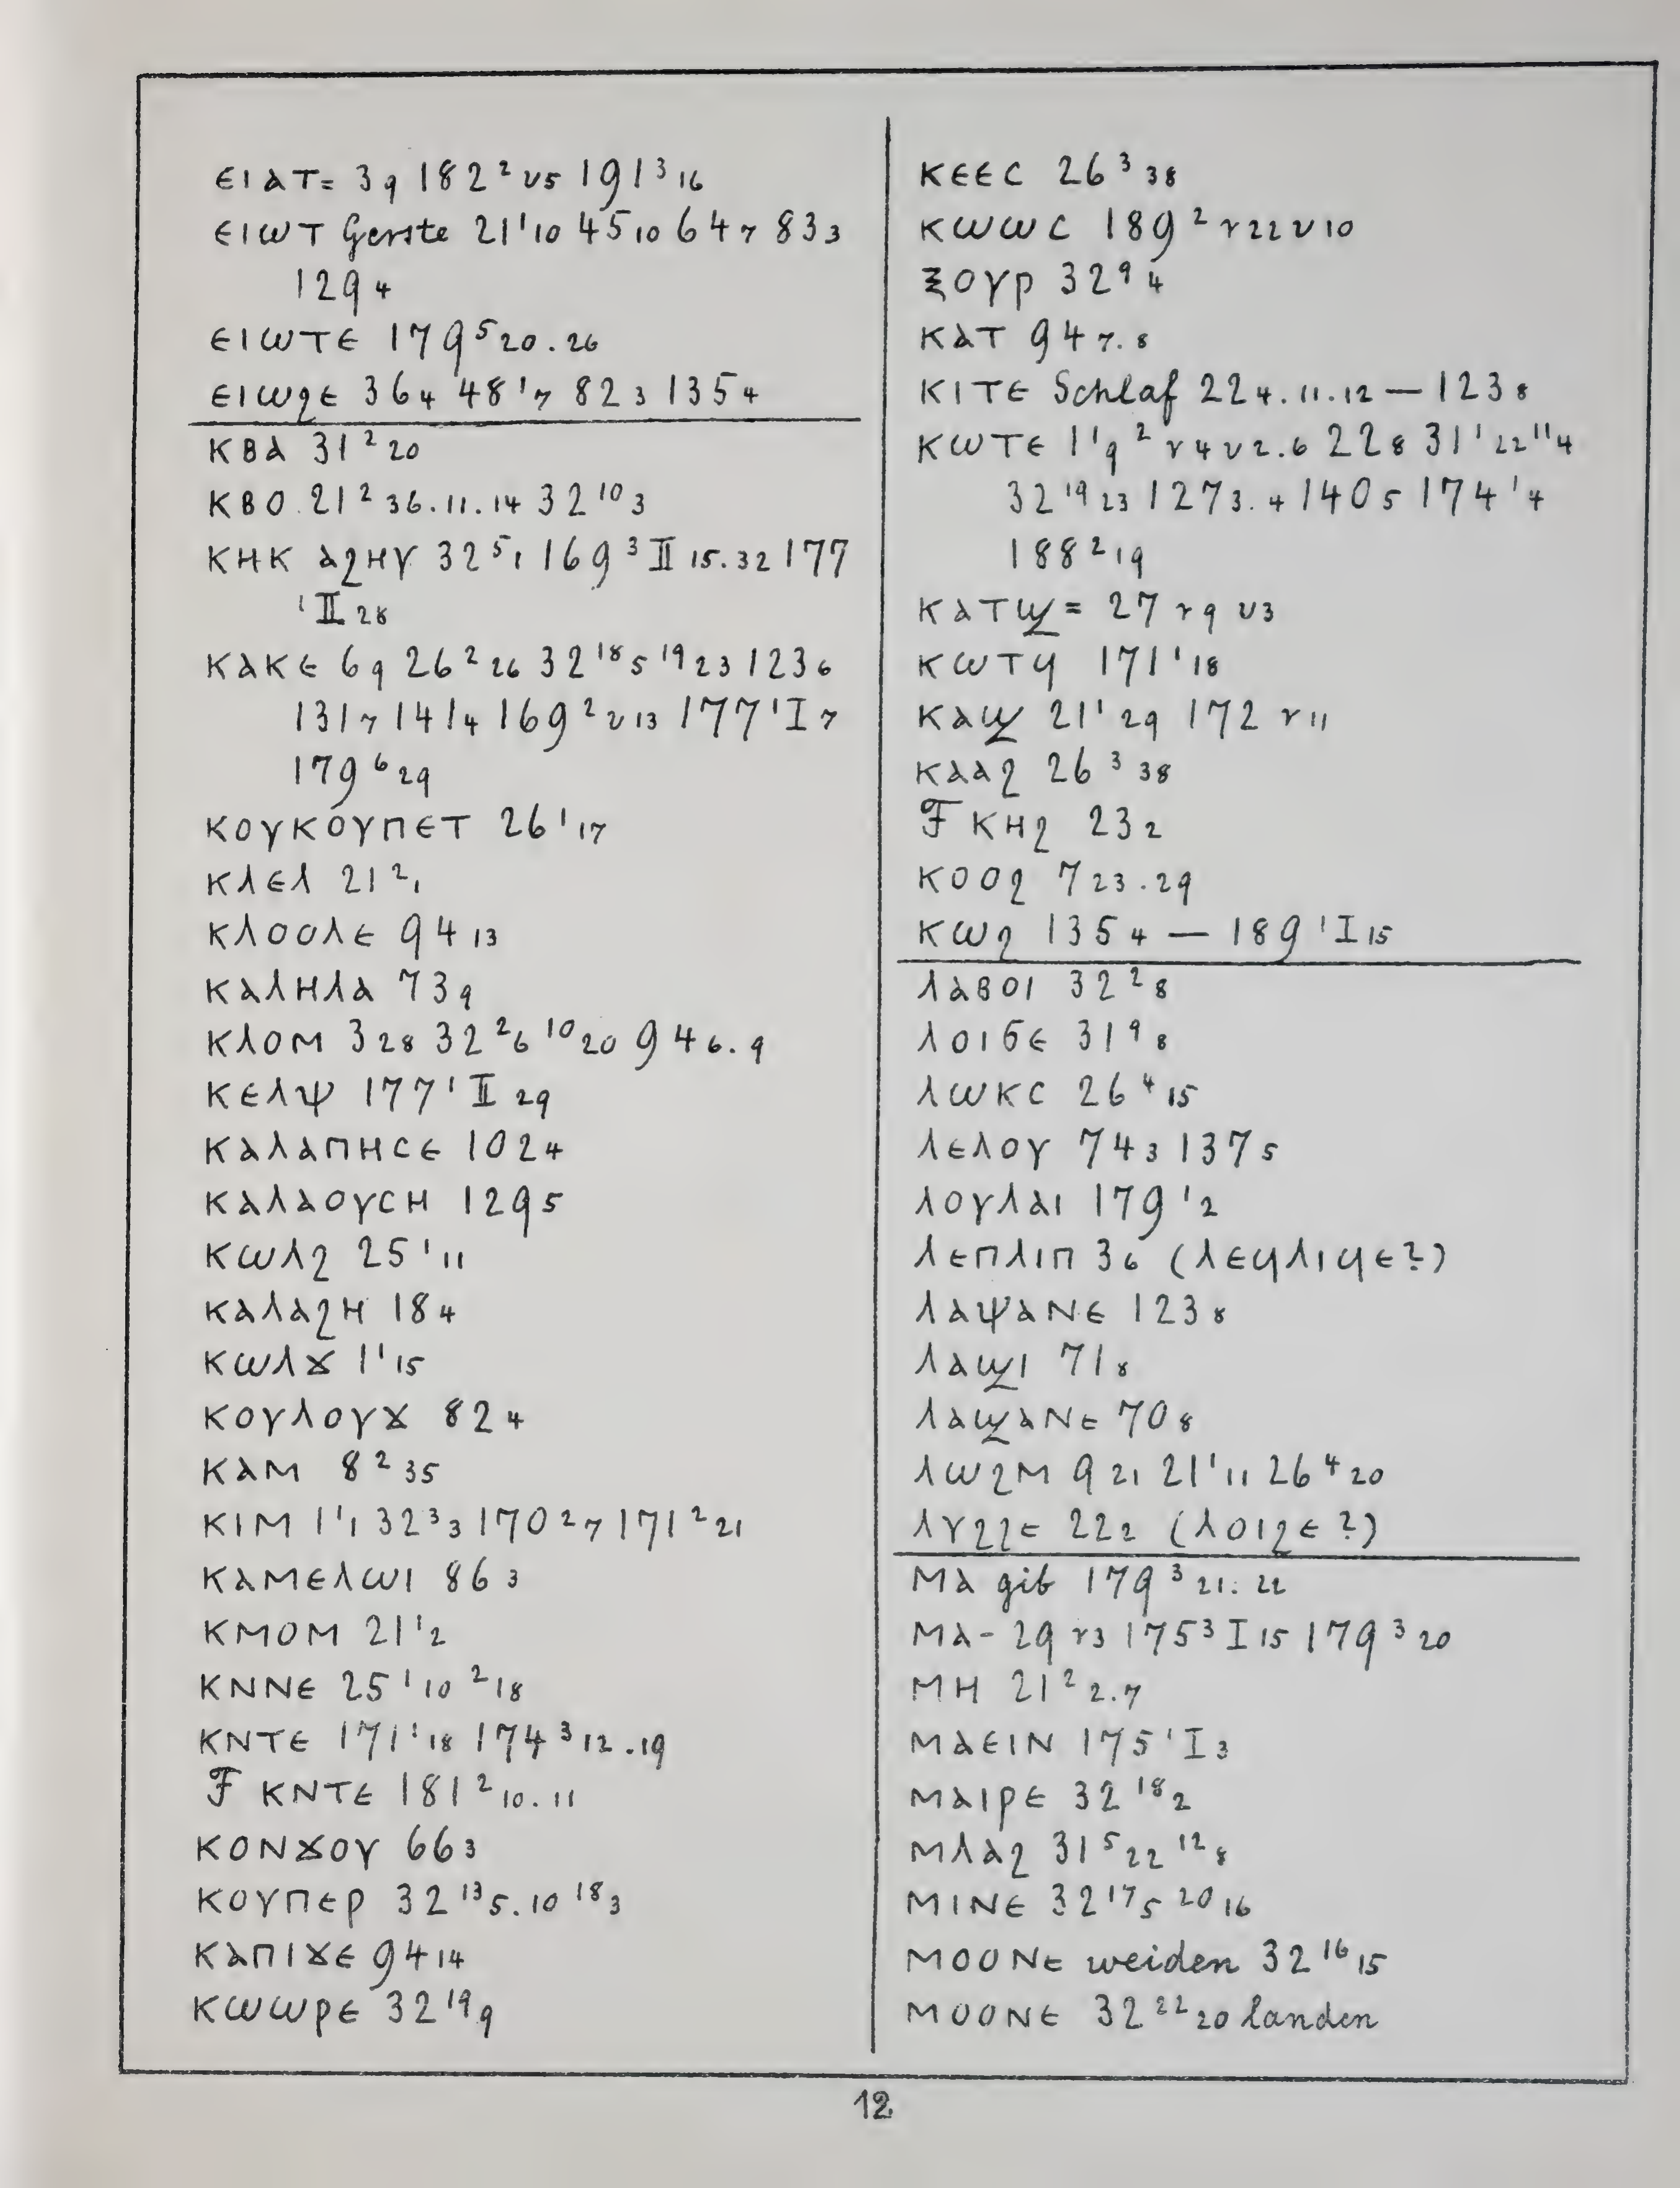 ⲉⲓⲁⲧ= 3 9 182² v5 191³ 16
ⲉⲓⲱⲧ Gerste 21¹ 10 45 10 64 7 83 3
129 4
ⲉⲓⲱⲧⲉ 179⁵ 20.26
ⲉⲓⲱϩⲉ 36 4 48¹ 7 82 3 135 4
ⲕⲃⲁ 31² 20
ⲕⲃⲟ 21² 36.11.14 32¹⁰ 3
ⲕⲏⲕ ⲁϩⲏⲩ 32⁵ 1 169³ II 15.32 177
¹ II 28
ⲕⲁⲕⲉ 6 9 26² 26 32¹⁸ 5 ¹⁹ 23 123 6
131 7 141 4 169² v 13 177¹ I 7
179⁶ 29
ⲕⲟⲩⲕⲟⲩⲡⲉⲧ 26¹ 17
ⲕⲗⲉⲗ 21² 1
ⲕⲗⲟⲟⲗⲉ 94 13
ⲕⲁⲗⲏⲗⲁ 73 9
ⲕⲗⲟⲙ 3 28 32² 6 ¹⁰ 20 94 6.9
ⲕⲉⲗⲯ 177¹ II 29
ⲕⲁⲗⲁⲡⲏⲥⲉ 102 4
ⲕⲁⲗⲁⲟⲩⲥⲏ 129 5
ⲕⲱⲗϩ 25¹ 11
ⲕⲁⲗⲁϩⲏ 18 4
ⲕⲱⲗϫ 1¹ 15
ⲕⲟⲩⲗⲟⲩϫ 82 4
ⲕⲁⲙ 8² 35
ⲕⲓⲙ 1¹ 1 32³ 3 170 27 171² 21
ⲕⲁⲙⲉⲗⲱⲓ 86 3
ⲕⲙⲟⲙ 21¹ 2
ⲕⲛⲛⲉ 25¹ 10 ² 18
ⲕⲛⲧⲉ 171¹ 18 174³ 12.19
F ⲕⲛⲧⲉ 181² 10.11
ⲕⲟⲛϫⲟⲩ 66 3
ⲕⲟⲩⲡⲉⲣ 32¹³ 5.10 ¹⁸ 3
ⲕⲁⲡⲓϫⲉ 94 14
ⲕⲱⲱⲣⲉ 32¹⁹ 9
ⲕⲉⲉⲥ 26³ 38
ⲕⲱⲱⲥ 189² r 22 v 10
ⲝⲟⲩⲣ 32⁹ 4
ⲕⲁⲧ 94 7.8
ⲕⲓⲧⲉ Schlaf 22 4.11.12 — 123 8
ⲕⲱⲧⲉ 1¹ 9 ² r 4 v 2.6 22 8 31¹ 22 ¹¹ 4
32¹⁹ 23 127 3.4 140 5 174¹ 4
188² 19
ⲕⲁⲧϣ= 27 r 9 v3
ⲕⲱⲧϥ 171¹ 18
ⲕⲁϣ 21¹ 29 172 r 11
ⲕⲁⲁϩ 26³ 38
F ⲕⲏϩ 23 2
ⲕⲟⲟϩ 7 23.29
ⲕⲱϩ 135 4 — 189¹ I 15
ⲗⲁⲃⲟⲓ 32² 8
ⲗⲟⲓϭⲉ 31⁹ 8
ⲗⲱⲕⲥ 26⁴ 15
ⲗⲉⲗⲟⲩ 74 3 137 5
ⲗⲟⲩⲗⲁⲓ 179¹ 2
ⲗⲉⲡⲗⲓⲡ 3 6 (ⲗⲉϥⲗⲓϥⲉ?)
ⲗⲁⲯⲁⲛⲉ 123 8
ⲗⲁϣⲓ 71 8
ⲗⲁϣⲁⲛⲉ 70 8
ⲗⲱϩⲙ 9 21 21¹ 11 26⁴ 20
ⲗⲩϩϩⲉ 22 2 (ⲗⲟⲓϩⲉ?)
ⲙⲁ gib 179³ 21.22
ⲙⲁ- 29 r3 175³ I 15 179³ 20
ⲙⲏ 21² 2.7
ⲙⲁⲉⲓⲛ 175¹ I 3
ⲙⲁⲓⲣⲉ 32¹⁸ 2
ⲙⲗⲁϩ 31⁵ 22 ¹² 8
ⲙⲓⲛⲉ 32¹⁷ 5 ²⁰ 16
ⲙⲟⲟⲛⲉ weiden 32¹⁶ 15
ⲙⲟⲟⲛⲉ 32²² 20 landen
12